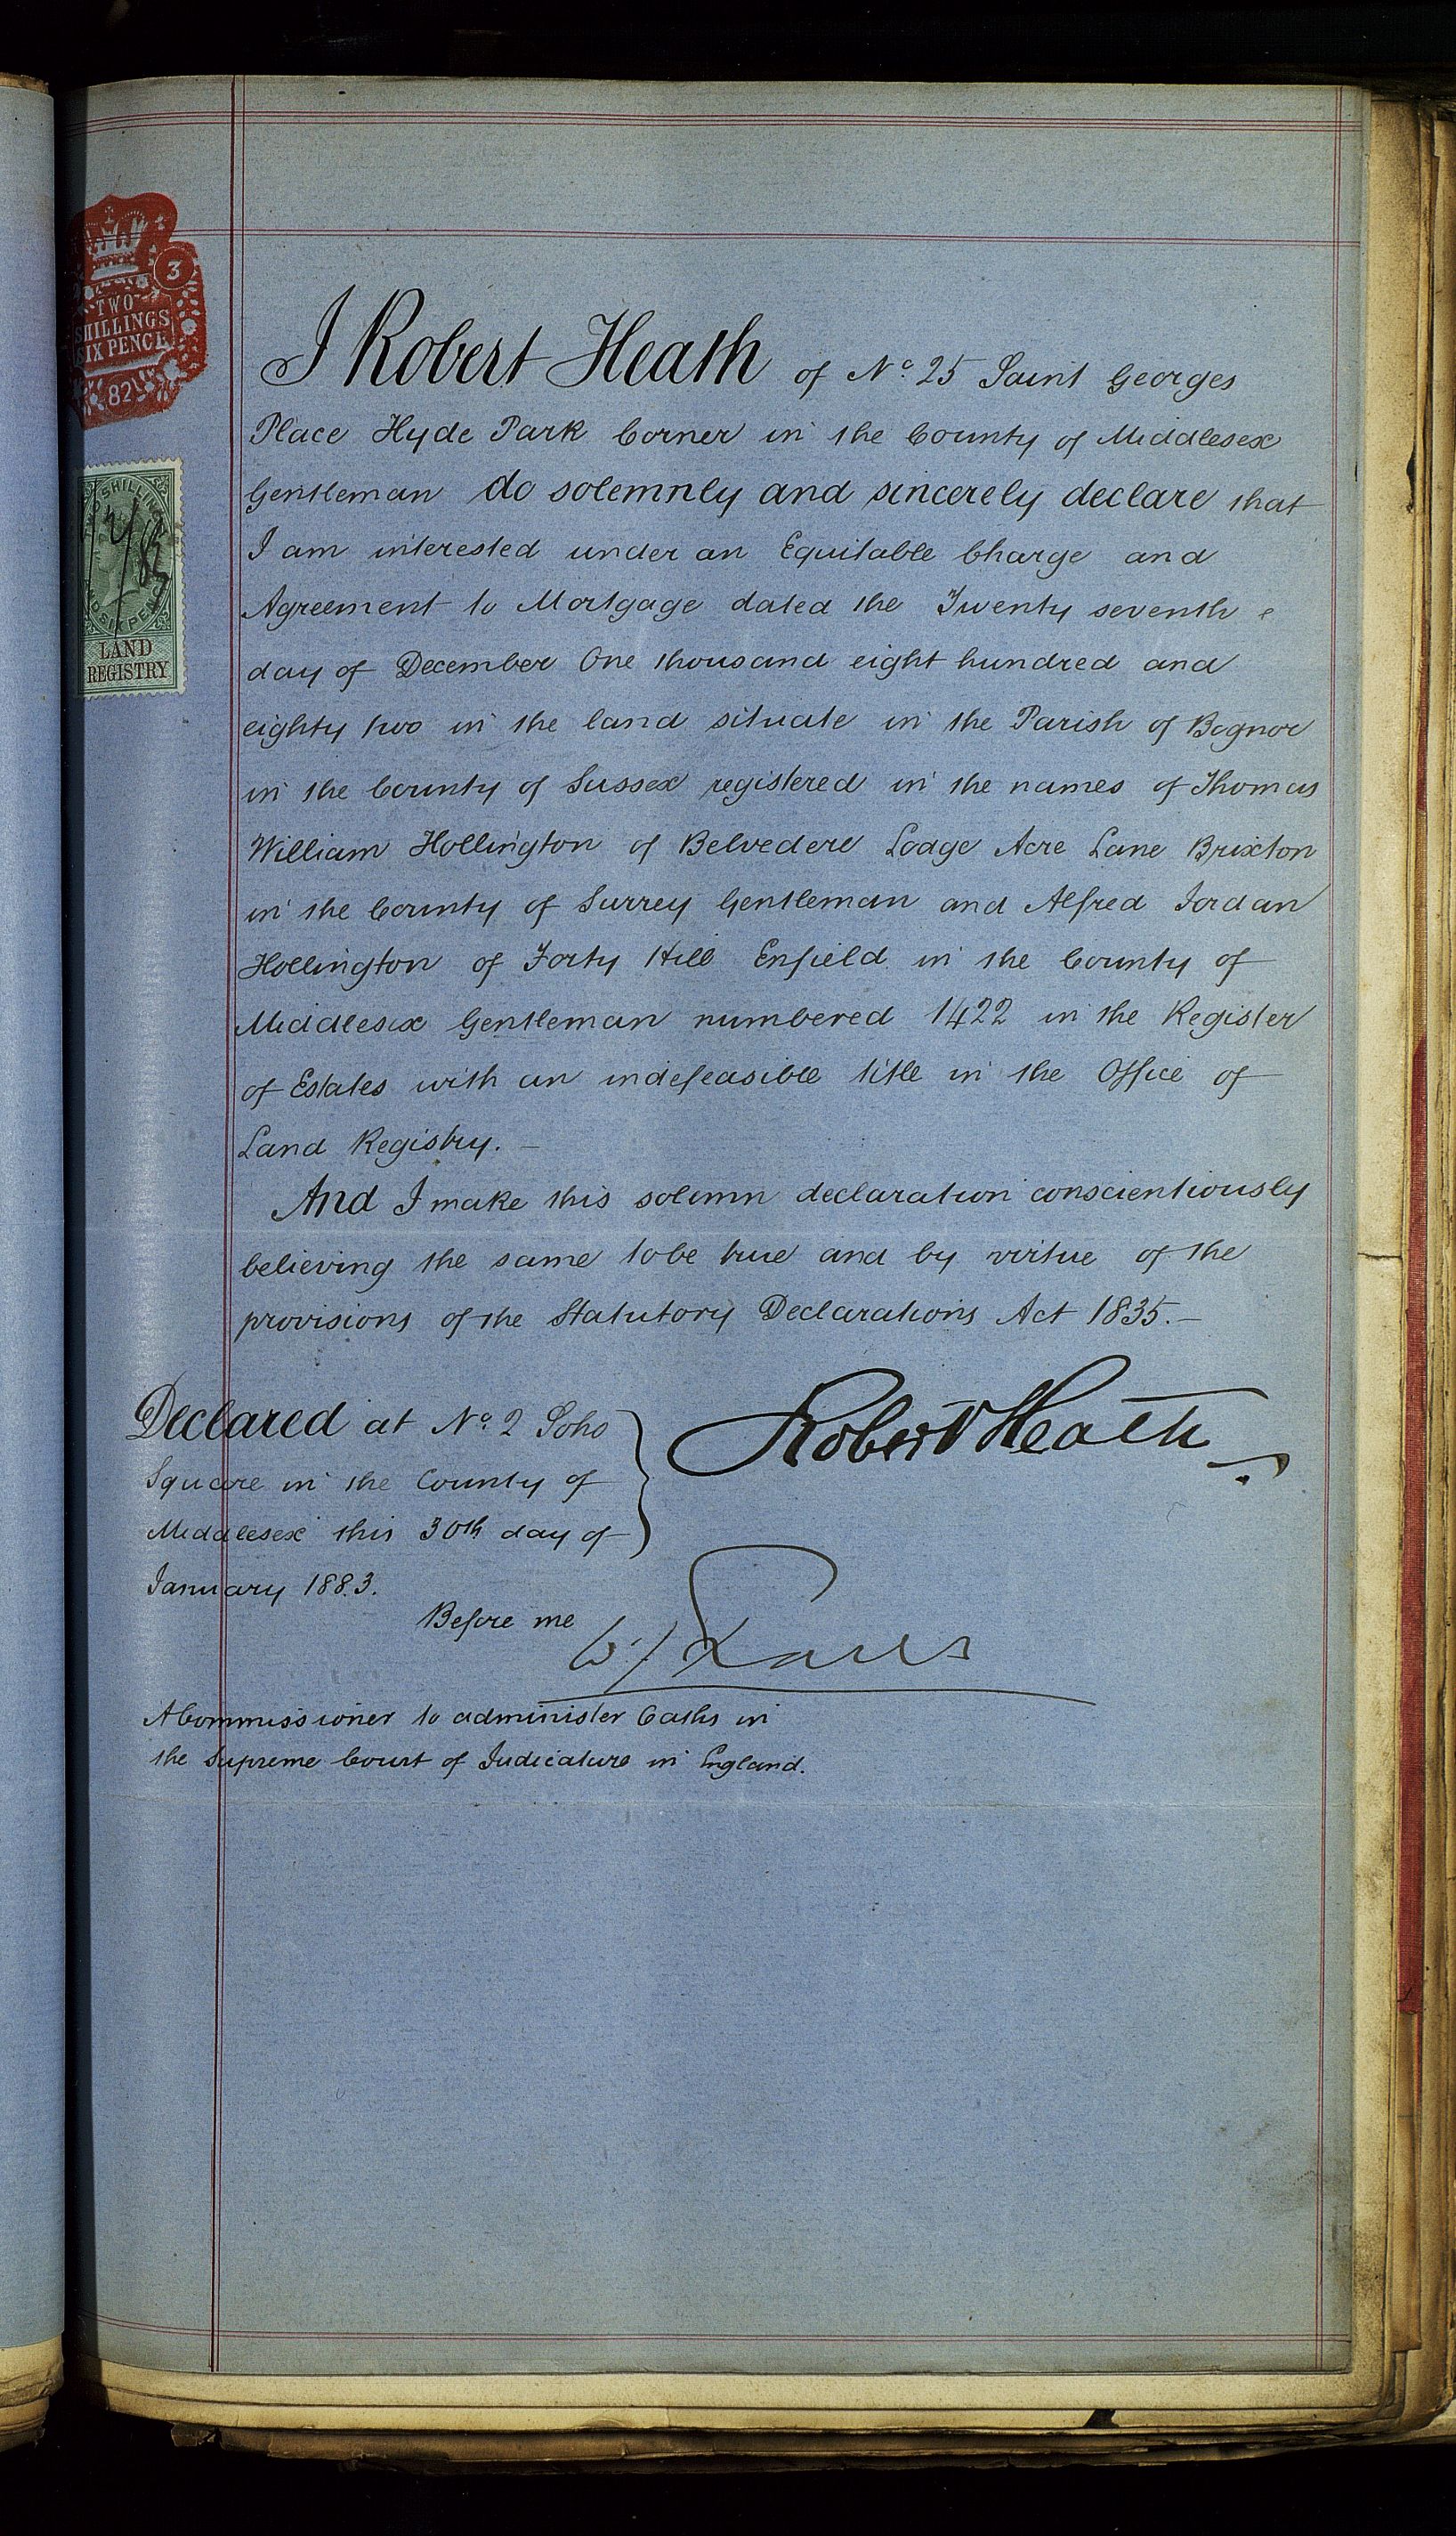 3
TWO
SHILLINGS
SIX PENCE
82
SHILLING
SIXPENCE
LAND
REGISTRY
I Robert Heath of No. 25 Saint Georges
Place Hyde Park Corner in the County of Middlesex
Gentleman do solemnly and sincerely declare that
I am interested under an Equitable Charge and
Agreement to Mortgage dated the Twenty seventh
day of December One thousand eight hundred and
eighty two in the land situate in the Parish of Bognor
in the County of Sussex registered in the names of Thomas
William Hollington of Belvedere Lodge Acre Lane Brixton
in the County of Surrey Gentleman and Alfred Jordan
Hollington of Forty Hill Enfield in the County of
Middlesex Gentleman numbered 1422 in the Register
of Estates with an indefeasible title in the Office of
Land Registry. —
And I make this solemn declaration conscientiously
believing the same to be true and by virtue of the
provisions of the Statutory Declarations Act 1835. —
Declared at No. 2 Soho
Square in the County of
Middlesex this 30th day of
January 1883.
Robert Heath
Before me
A Commissioner to administer Oaths in
the Supreme Court of Judicature in England.